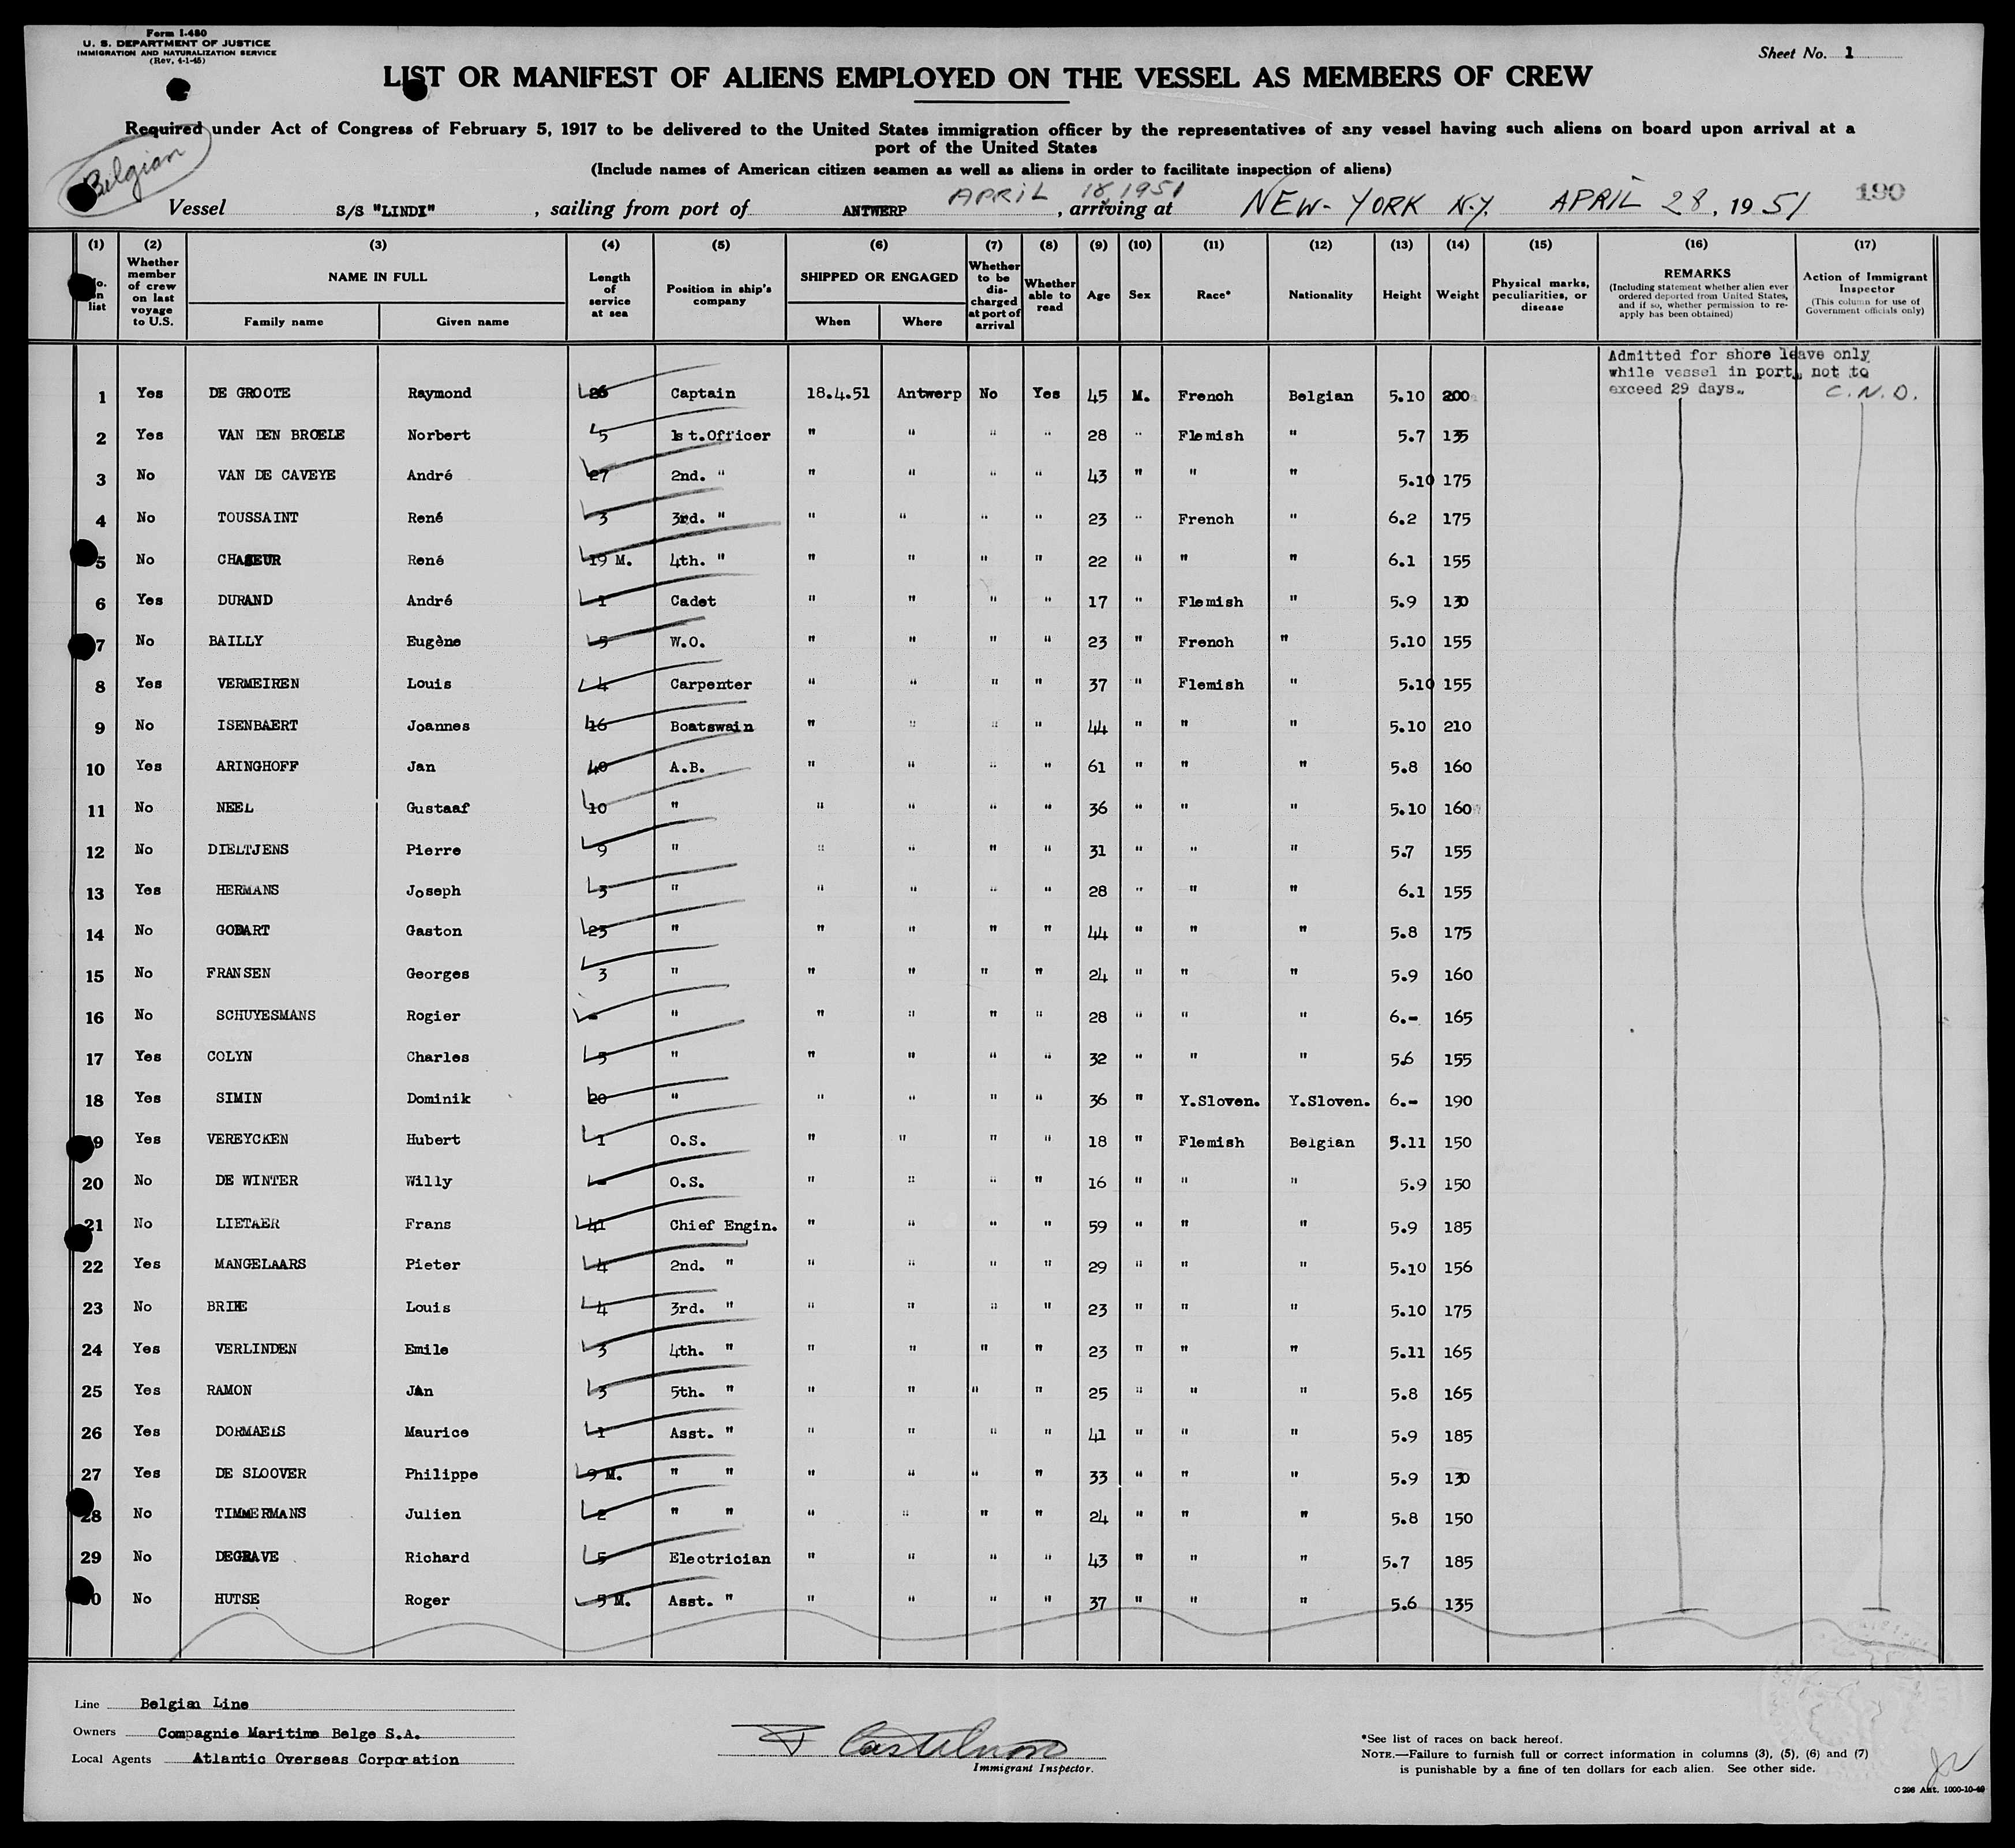 Form I-480
U. S. DEPARTMENT OF JUSTICE
IMMIGRATION AND NATURALIZATION SERVICE
(Rev. 4-1-45)
Sheet No. 1
LIST OR MANIFEST OF ALIENS EMPLOYED ON THE VESSEL AS MEMBERS OF CREW
Required under Act of Congress of February 5, 1917 to be delivered to the United States immigration officer by the representatives of any vessel having such aliens on board upon arrival at a
port of the United States
(Include names of American citizen seamen as well as aliens in order to facilitate inspection of aliens)
Belgian
APRIL 18, 1951
Vessel S/S "LINDI", sailing from port of ANTWERP, arriving at NEW-YORK N.Y. APRIL 28, 1951
190
(1) (2) (3) (4) (5) (6) (7) (8) (9) (10) (11) (12) (13) (14) (15) (16) (17)
No. on list
Whether member of crew on last voyage to U.S.
NAME IN FULL
Family name Given name
Length of service at sea
Position in ship's company
SHIPPED OR ENGAGED
When Where
Whether to be discharged at port of arrival
Whether able to read
Age Sex Race* Nationality Height Weight
Physical marks, peculiarities, or disease
REMARKS
(Including statement whether alien ever ordered deported from United States, and if so, whether permission to re-apply has been obtained)
Action of Immigrant Inspector
(This column for use of Government officials only)
Admitted for shore leave only
while vessel in port, not to
exceed 29 days.
C.N.D.
1 Yes DE GROOTE Raymond 26 Captain 18.4.51 Antwerp No Yes 45 M. French Belgian 5.10 200
2 Yes VAN DEN BROELE Norbert 5 1st.Officer " " " " 28 " Flemish " 5.7 135
3 No VAN DE CAVEYE André 27 2nd. " " " " " 43 " " " 5.10 175
4 No TOUSSAINT René 3 3rd. " " " " " 23 " French " 6.2 175
5 No CHASEUR René 19 M. 4th. " " " " " 22 " " " 6.1 155
6 Yes DURAND André 1 Cadet " " " " 17 " Flemish " 5.9 130
7 No BAILLY Eugène 5 W.O. " " " " 23 " French " 5.10 155
8 Yes VERMEIREN Louis 4 Carpenter " " " " 37 " Flemish " 5.10 155
9 No ISENBAERT Joannes 16 Boatswain " " " " 44 " " " 5.10 210
10 Yes ARINGHOFF Jan 40 A.B. " " " " 61 " " " 5.8 160
11 No NEEL Gustaaf 10 " " " " " 36 " " " 5.10 160
12 No DIELTJENS Pierre 9 " " " " " 31 " " " 5.7 155
13 Yes HERMANS Joseph 3 " " " " " 28 " " " 6.1 155
14 No GOBART Gaston 23 " " " " " 44 " " " 5.8 175
15 No FRANSEN Georges 3 " " " " " 24 " " " 5.9 160
16 No SCHUYESMANS Rogier - " " " " " 28 " " " 6.- 165
17 Yes COLYN Charles 5 " " " " " 32 " " " 5.6 155
18 Yes SIMIN Dominik 20 " " " " " 36 " Y.Sloven. Y.Sloven. 6.- 190
19 Yes VEREYCKEN Hubert 1 O.S. " " " " 18 " Flemish Belgian 5.11 150
20 No DE WINTER Willy - O.S. " " " " 16 " " " 5.9 150
21 No LIETAER Frans 41 Chief Engin. " " " " 59 " " " 5.9 185
22 Yes MANGELAARS Pieter 4 2nd. " " " " " 29 " " " 5.10 156
23 No BRIKE Louis 4 3rd. " " " " " 23 " " " 5.10 175
24 Yes VERLINDEN Emile 3 4th. " " " " " 23 " " " 5.11 165
25 Yes RAMON Jan 3 5th. " " " " " 25 " " " 5.8 165
26 Yes DORMAELS Maurice 1 Asst. " " " " " 41 " " " 5.9 185
27 Yes DE SLOOVER Philippe 9 M. " " " " " " 33 " " " 5.9 130
28 No TIMMERMANS Julien 2 " " " " " " 24 " " " 5.8 150
29 No DEGRAVE Richard 5 Electrician " " " " 43 " " " 5.7 185
30 No HUTSE Roger 5 M. Asst. " " " " " 37 " " " 5.6 135
Line Belgian Line
Owners Compagnie Maritime Belge S.A.
Local Agents Atlantic Overseas Corporation
Immigrant Inspector.
*See list of races on back hereof.
NOTE.—Failure to furnish full or correct information in columns (3), (5), (6) and (7)
is punishable by a fine of ten dollars for each alien. See other side.
C 298 Ant. 1000-10-49